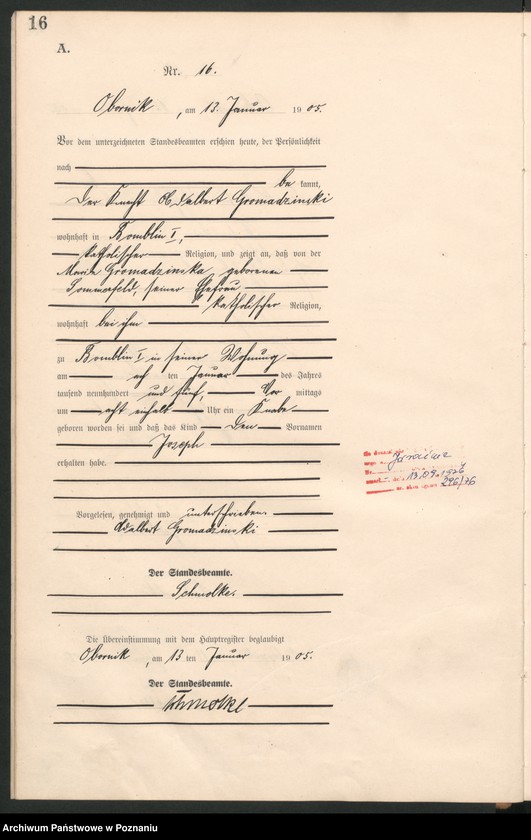 16
A.
Nr. 16.
Obornik, am 13. Januar 1905.
Vor dem unterzeichneten Standesbeamten erschien heute, der Persönlichkeit
nach
be kannt,
der Knecht Adalbert Gromadzinski
wohnhaft in Bomblin I,
katholischer Religion, und zeigt an, daß von der
Maria Gromadzinska geborenen
Sommerfeld, seiner Ehefrau
katholischer Religion,
wohnhaft bei ihm
zu Bomblin I in seiner Wohnung
am ten Januar des Jahres
tausend neunhundert und fünf, Vor mittags
um acht einhalb Uhr ein Knabe
geboren worden sei und daß das Kind den Vornamen
Joseph
erhalten habe.
Vorgelesen, genehmigt und unterschrieben
Adalbert Gromadzinski
Der Standesbeamte.
Schmolke.
Die Übereinstimmung mit dem Hauptregister beglaubigt
Obornik, am 13 ten Januar 1905.
Der Standesbeamte.
Schmolke
13.09.1976
396/76
Archiwum Państwowe w Poznaniu